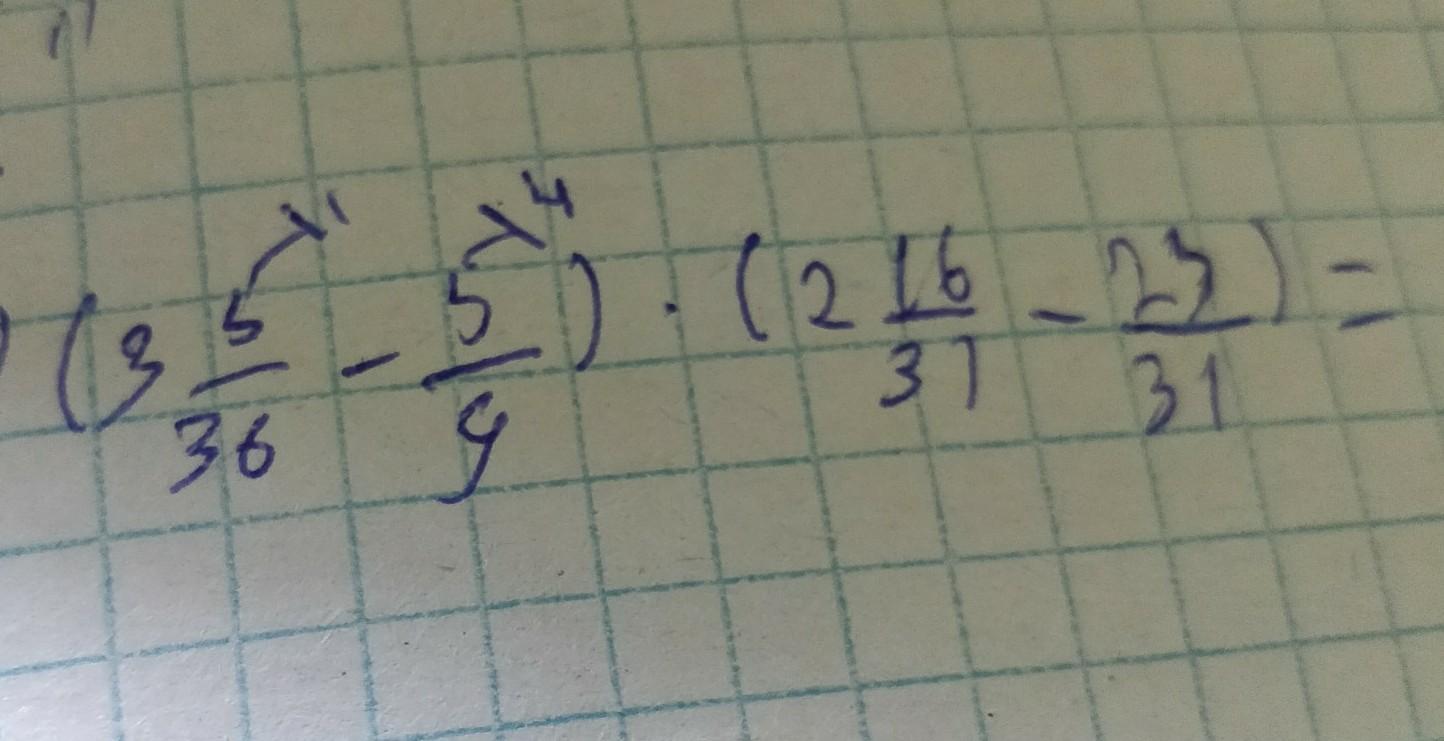 (3 5/36 \1 - 5/9 \4) · (2 16/31 - 23/31) =